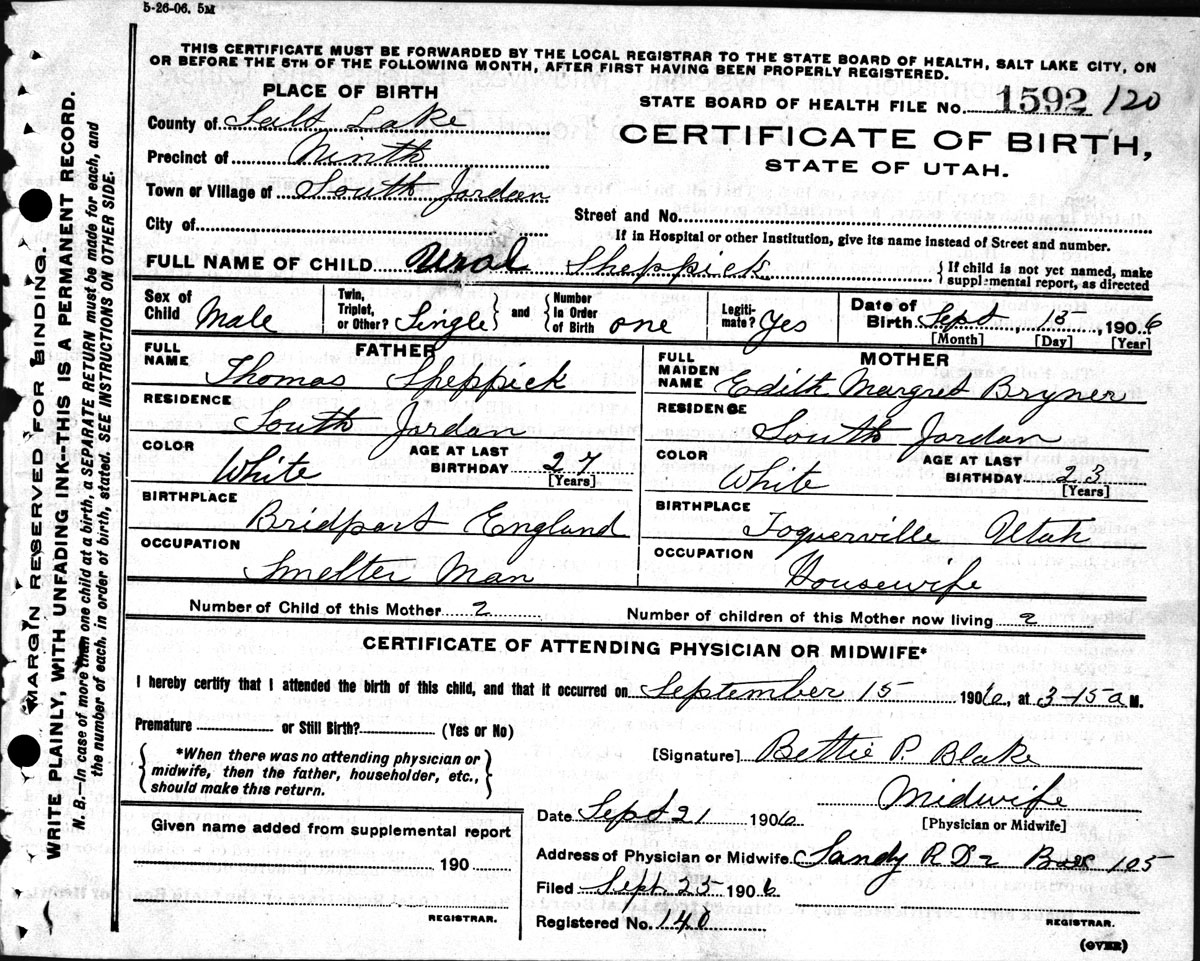 5-26-06. 5M
THIS CERTIFICATE MUST BE FORWARDED BY THE LOCAL REGISTRAR TO THE STATE BOARD OF HEALTH, SALT LAKE CITY, ON
OR BEFORE THE 5TH OF THE FOLLOWING MONTH, AFTER FIRST HAVING BEEN PROPERLY REGISTERED.
PLACE OF BIRTH
STATE BOARD OF HEALTH FILE No. 1592 /120
County of Salt Lake
CERTIFICATE OF BIRTH,
Precinct of Ninth
STATE OF UTAH.
Town or Village of South Jordan
Street and No.
City of
If in Hospital or other Institution, give its name instead of Street and number.
FULL NAME OF CHILD Veral Sheppick {If child is not yet named, make supplemental report, as directed
Sex of Child Male Twin, Triplet, or Other? Single } and { Number In Order of Birth one Legiti- mate? Yes Date of Birth Sept 15, 1906
[Month] [Day] [Year]
FATHER MOTHER
FULL NAME Thomas Sheppick FULL MAIDEN NAME Edith Margret Bryner
RESIDENCE South Jordan RESIDENCE South Jordan
COLOR White AGE AT LAST BIRTHDAY 27 [Years] COLOR White AGE AT LAST BIRTHDAY 23 [Years]
BIRTHPLACE Bridport England BIRTHPLACE Toquerville Utah
OCCUPATION Smelter Man OCCUPATION Housewife
Number of Child of this Mother 2 Number of children of this Mother now living 2
CERTIFICATE OF ATTENDING PHYSICIAN OR MIDWIFE*
I hereby certify that I attended the birth of this child, and that it occurred on September 15 1906, at 3-15 a M.
Premature or Still Birth? (Yes or No)
{*When there was no attending physician or
midwife, then the father, householder, etc.,
should make this return.}
[Signature] Bettie P. Blake
Midwife
[Physician or Midwife]
Date Sept 21 1906
Given name added from supplemental report
190
REGISTRAR.
Address of Physician or Midwife Sandy R D 2 Box 105
Filed Sept 25 1906
Registered No. 140
REGISTRAR.
(OVER)
MARGIN RESERVED FOR BINDING.
WRITE PLAINLY, WITH UNFADING INK--THIS IS A PERMANENT RECORD.
N. B.—In case of more than one child at a birth, a SEPARATE RETURN must be made for each, and
the number of each, in order of birth, stated. SEE INSTRUCTIONS ON OTHER SIDE.